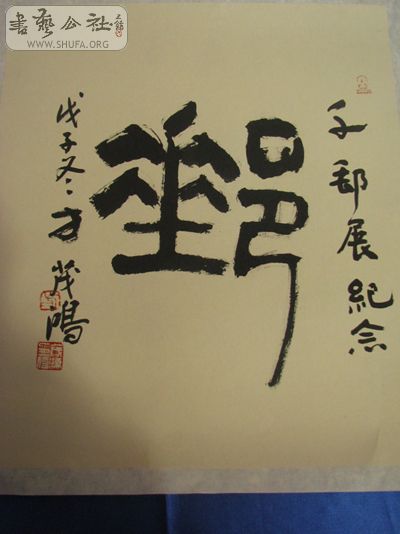 書藝公社
WWW.SHUFA.ORG
展紀念
郵
戊子冬方茂鴻